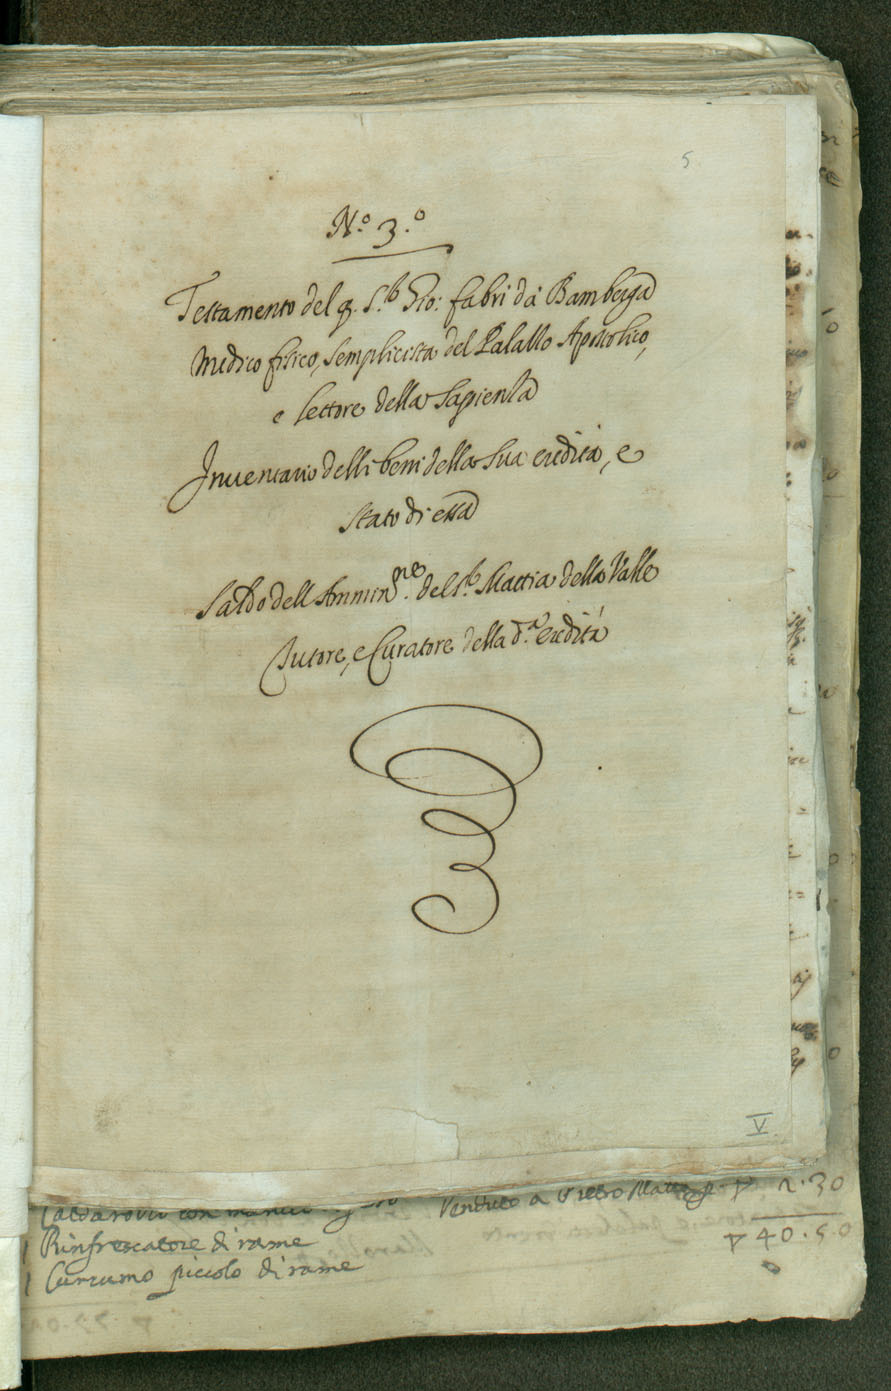 5
N.º 3.º
Testamento del q. S.r Gio: fabri da Bamberga
Medico fisico, Semplicista del Palazzo Apostolico,
e lettore della Sapienza
Inuentario delli beni della Sua eredità, e
Stato di essa
Saldo dell Ammin.ne del S.r Mattia della Valle
Tutore, e Curatore della d.a eredità
V
con Venduto a 2.30
1 Rinfrescatore di rame 40.50
1 Cuccumo piccolo di rame